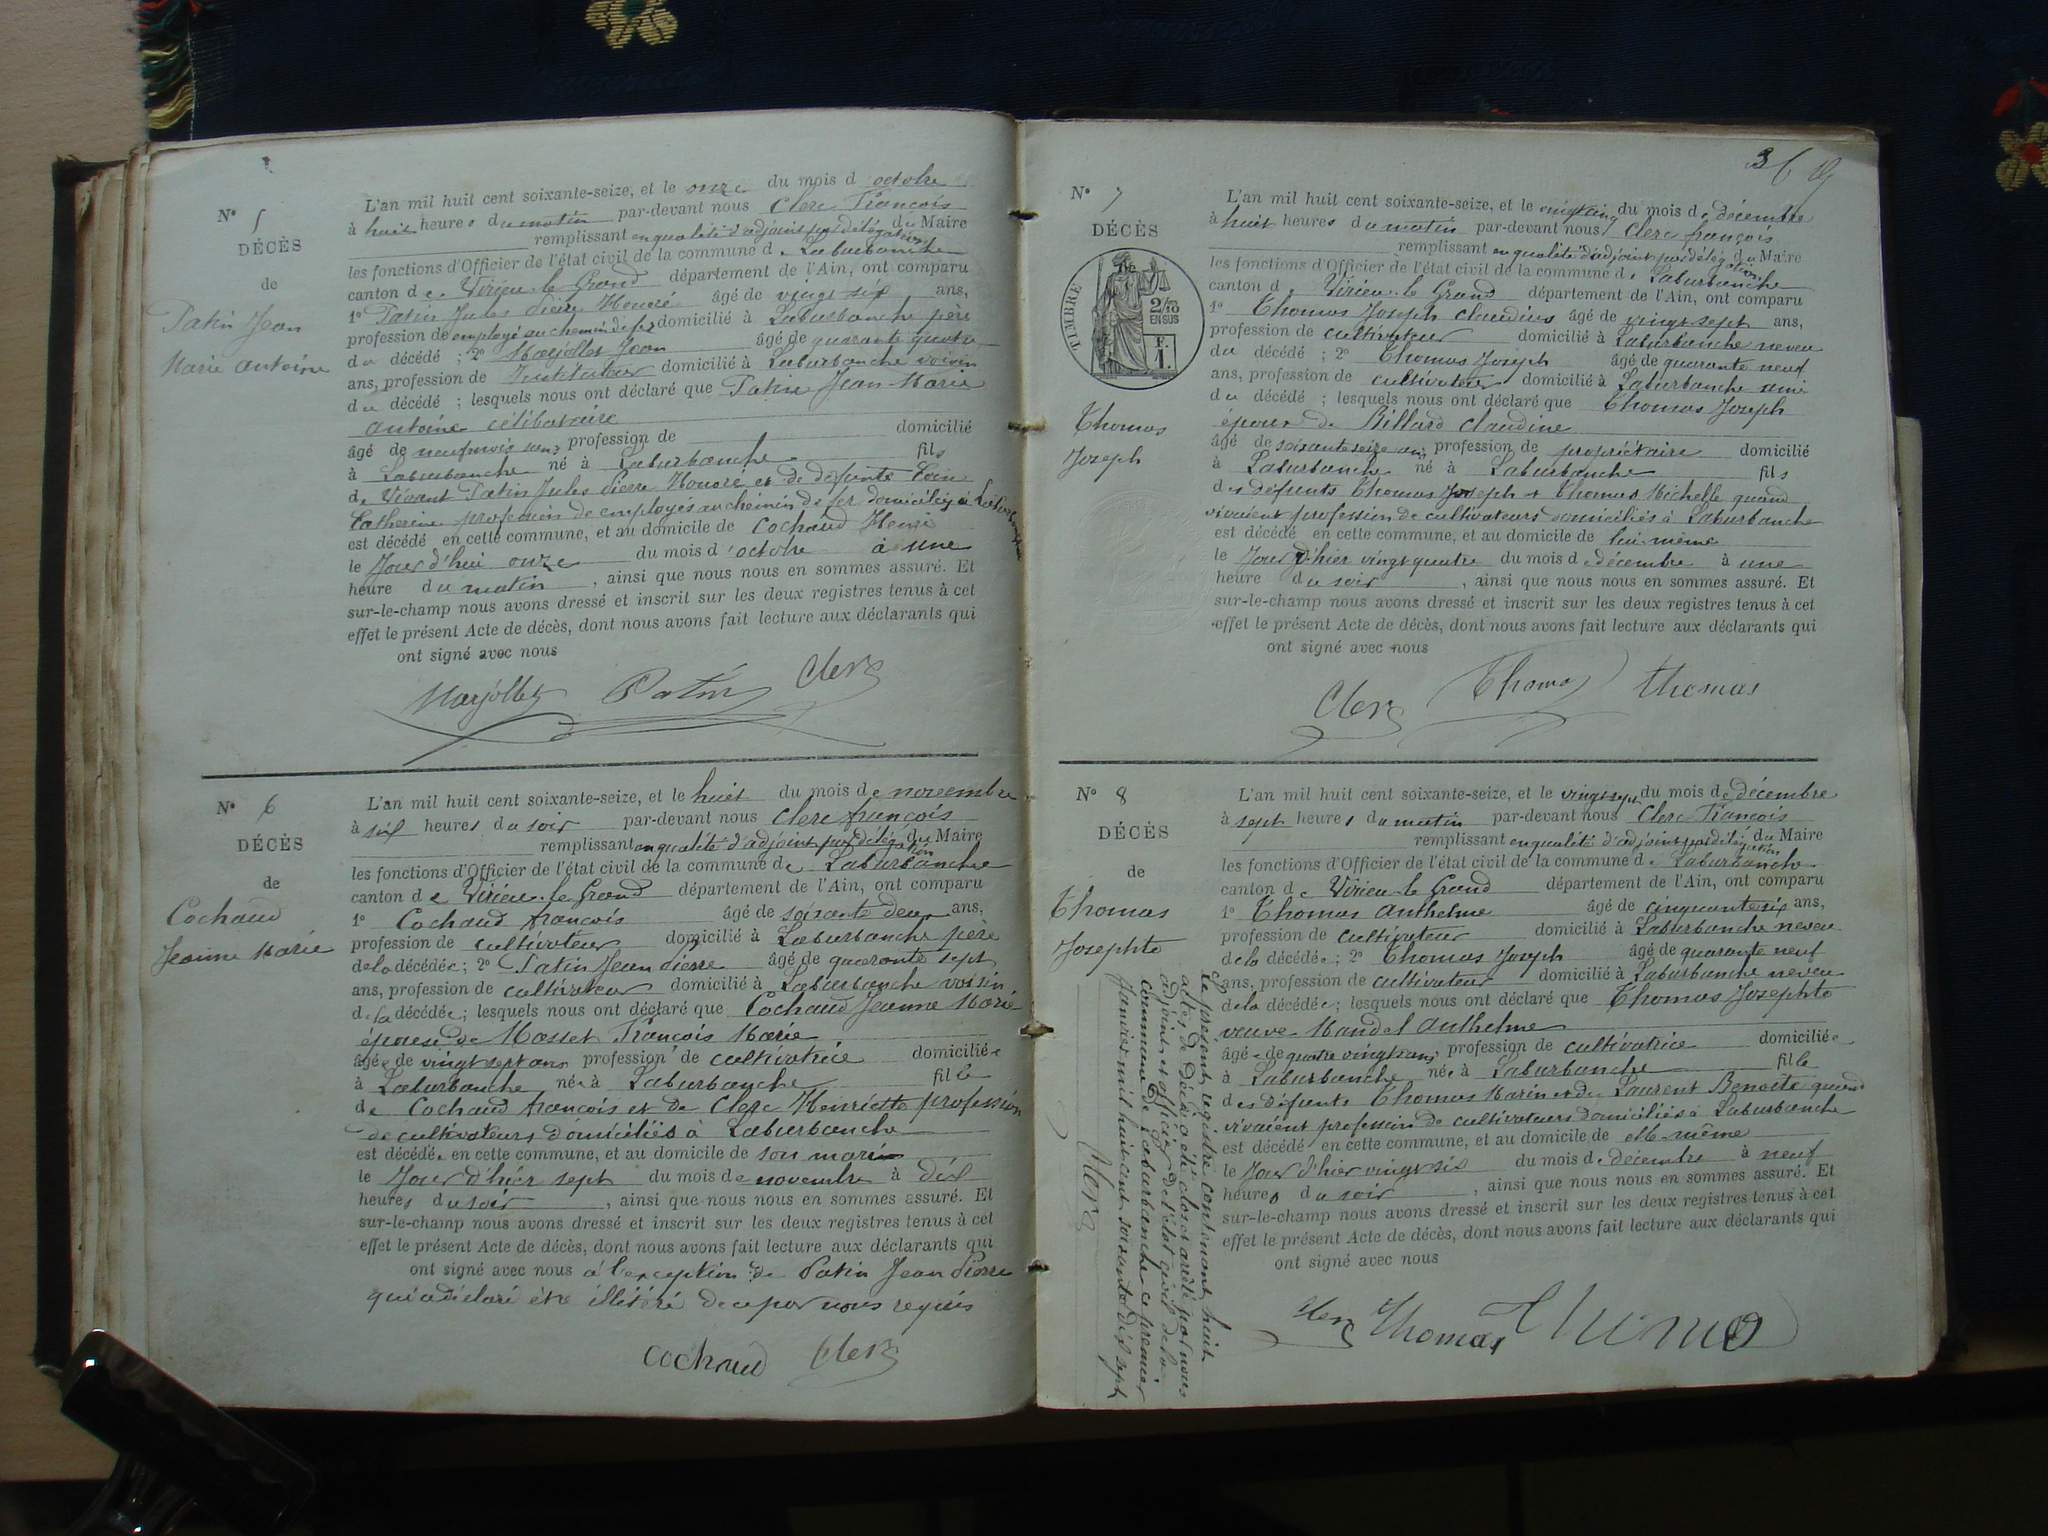 N° 5
DÉCÈS
de
Patin Jean
Marie Antoine
L'an mil huit cent soixante-seize, et le onze du mois d octobre
à huit heures du matin par-devant nous Clerc François
remplissant en qualité d'adjoint par délégation du Maire
les fonctions d'Officier de l'état civil de la commune de Laburbanche
canton de Virieu-le-Grand département de l'Ain, ont comparu
1° Patin Jules Pierre Honoré âgé de vingt six ans,
profession de employé au chemin de fer domicilié à Laburbanche père
du décédé ; 2° Marjollet Jean âgé de quarante quatre
ans, profession de Instituteur domicilié à Laburbanche voisin
du décédé ; lesquels nous ont déclaré que Patin Jean Marie
Antoine célibataire
âgé de neuf mois profession de domicilié
à Laburbanche né à Laburbanche fils
de Vivant Patin Jules Pierre Honoré et de défunte
Catherine profession de employés au chemin de fer domiciliés à Laburbanche
est décédé en cette commune, et au domicile de Cochaud Henri
le Jour d'hui onze du mois d'octobre à une
heure du matin, ainsi que nous nous en sommes assuré. Et
sur-le-champ nous avons dressé et inscrit sur les deux registres tenus à cet
effet le présent Acte de décès, dont nous avons fait lecture aux déclarants qui
ont signé avec nous
Marjollet Patin Clerc
N° 6
DÉCÈS
de
Cochaud
Jeanne Marie
L'an mil huit cent soixante-seize, et le huit du mois de novembre
à six heures du soir par-devant nous Clerc françois
remplissant en qualité d'adjoint par délégation du Maire
les fonctions d'Officier de l'état civil de la commune de Laburbanche
canton de Virieu-le-Grand département de l'Ain, ont comparu
1° Cochaud françois âgé de soixante deux ans,
profession de cultivateur domicilié à Laburbanche père
de la décédée; 2° Patin Jean Pierre âgé de quarante sept
ans, profession de cultivateur domicilié à Laburbanche voisin
de la décédée; lesquels nous ont déclaré que Cochaud Jeanne Marie
épouse de Masset François Marie
âgée de vingt sept ans profession de cultivatrice domiciliée
à Laburbanche née à Laburbanche fille
de Cochaud françois et de Clerc Henriette profession
de cultivateurs domiciliés à Laburbanche
est décédée en cette commune, et au domicile de son mari
le Jour d'hier sept du mois de novembre à dix
heures du soir, ainsi que nous nous en sommes assuré. Et
sur-le-champ nous avons dressé et inscrit sur les deux registres tenus à cet
effet le présent Acte de décès, dont nous avons fait lecture aux déclarants qui
ont signé avec nous à l'exception de Patin Jean Pierre
qui a déclaré être illitéré de ce par nous requis
Cochaud Clerc
N° 7
DÉCÈS
TIMBRE
2/10
EN SUS
F.
1.
Thomas
Joseph
L'an mil huit cent soixante-seize, et le vingt cinq du mois de décembre
à huit heures du matin par-devant nous Clerc françois
remplissant en qualité d'adjoint par délégation du Maire
les fonctions d'Officier de l'état civil de la commune de Laburbanche
canton de Virieu-le-Grand département de l'Ain, ont comparu
1° Thomas Joseph Claudius âgé de vingt sept ans,
profession de cultivateur domicilié à Laburbanche neveu
du décédé ; 2° Thomas Joseph âgé de quarante neuf
ans, profession de cultivateur domicilié à Laburbanche ami
du décédé ; lesquels nous ont déclaré que Thomas Joseph
époux de Billard Claudine
âgé de soixante seize ans profession de propriétaire domicilié
à Laburbanche né à Laburbanche fils
des défunts Thomas Joseph et Thomas Michelle quand
vivaient profession de cultivateurs domiciliés à Laburbanche
est décédé en cette commune, et au domicile de lui-même
le Jour d'hier vingt quatre du mois de décembre à une
heure du soir, ainsi que nous nous en sommes assuré. Et
sur-le-champ nous avons dressé et inscrit sur les deux registres tenus à cet
effet le présent Acte de décès, dont nous avons fait lecture aux déclarants qui
ont signé avec nous
Clerc Thomas Thomas
N° 8
DÉCÈS
de
Thomas
Josephte
L'an mil huit cent soixante-seize, et le vingt sept du mois de décembre
à sept heures du matin par-devant nous Clerc François
remplissant en qualité d'adjoint par délégation du Maire
les fonctions d'Officier de l'état civil de la commune de Laburbanche
canton de Virieu-le-Grand département de l'Ain, ont comparu
1° Thomas Anthelme âgé de cinquante six ans,
profession de cultivateur domicilié à Laburbanche neveu
de la décédée; 2° Thomas Joseph âgé de quarante neuf
ans, profession de cultivateur domicilié à Laburbanche neveu
de la décédée; lesquels nous ont déclaré que Thomas Josephte
veuve Mandet Anthelme
âgée de quatre vingts ans profession de cultivatrice domiciliée
à Laburbanche née à Laburbanche fille
des défunts Thomas Marin et de Laurent Benoite quand
vivaient profession de cultivateurs domiciliés à Laburbanche
est décédée en cette commune, et au domicile de elle-même
le Jour d'hier vingt six du mois de décembre à neuf
heures du soir, ainsi que nous nous en sommes assuré. Et
sur-le-champ nous avons dressé et inscrit sur les deux registres tenus à cet
effet le présent Acte de décès, dont nous avons fait lecture aux déclarants qui
ont signé avec nous
Clerc Thomas
Le présent registre contenant huit
actes de décès a été clos et arrêté par nous
adjoint et officier de l'état civil de la
commune de Laburbanche ce premier
Janvier mil huit cent soixante dix sept
Clerc